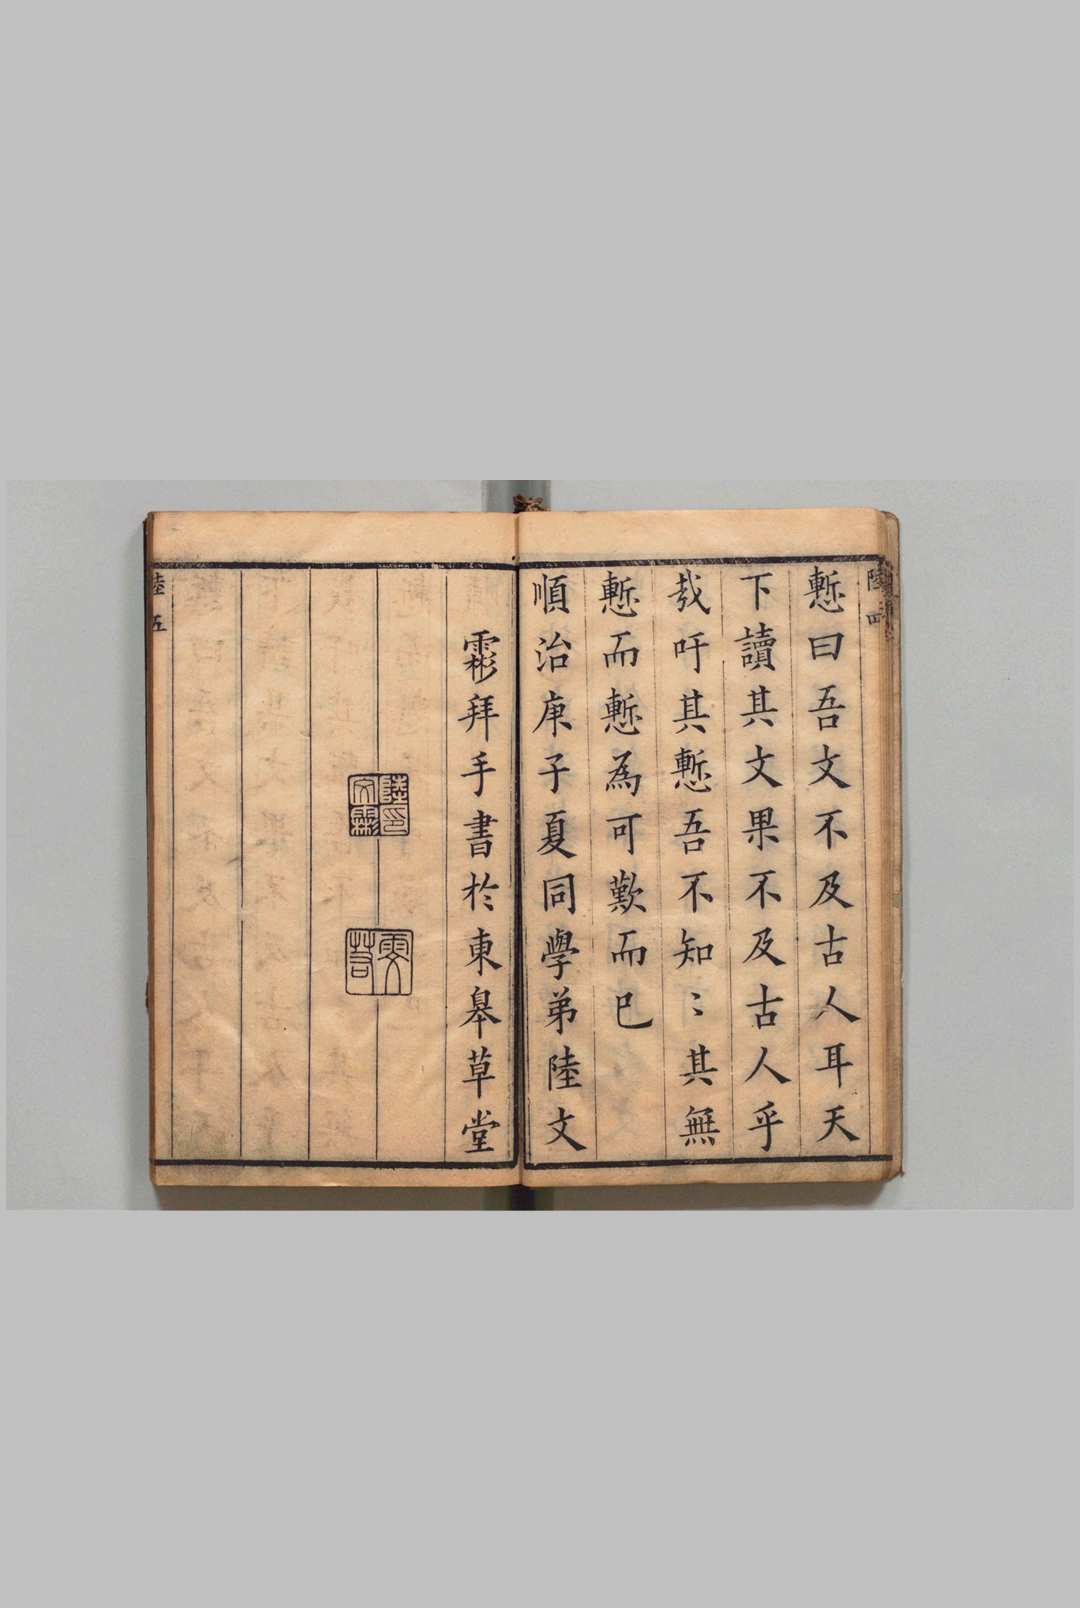 陸 四
慙曰吾文不及古人耳天
下讀其文果不及古人乎
哉吁其慙吾不知〻其無
慙而慙為可歎而已
順治庚子夏同學弟陸文
霦拜手書於東皋草堂
陸印文霦
陸 五